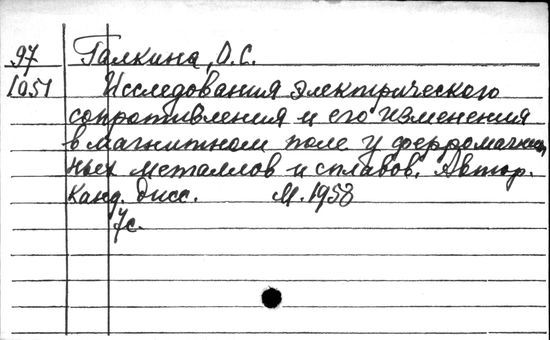 97 Галкина, О.С.
1051 Исследования электрического
сопротивления и его изменения
в магнитном поле у ферромагнит-
ных металлов и сплавов. Автор.
Канд. дисс. М. 1958
7с.